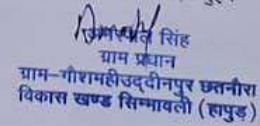 सिंह
ग्राम प्रधान
ग्राम-गौशमहीउद्दीनपुर छतनौरा
विकास खण्ड सिम्भावली (हापुड़)